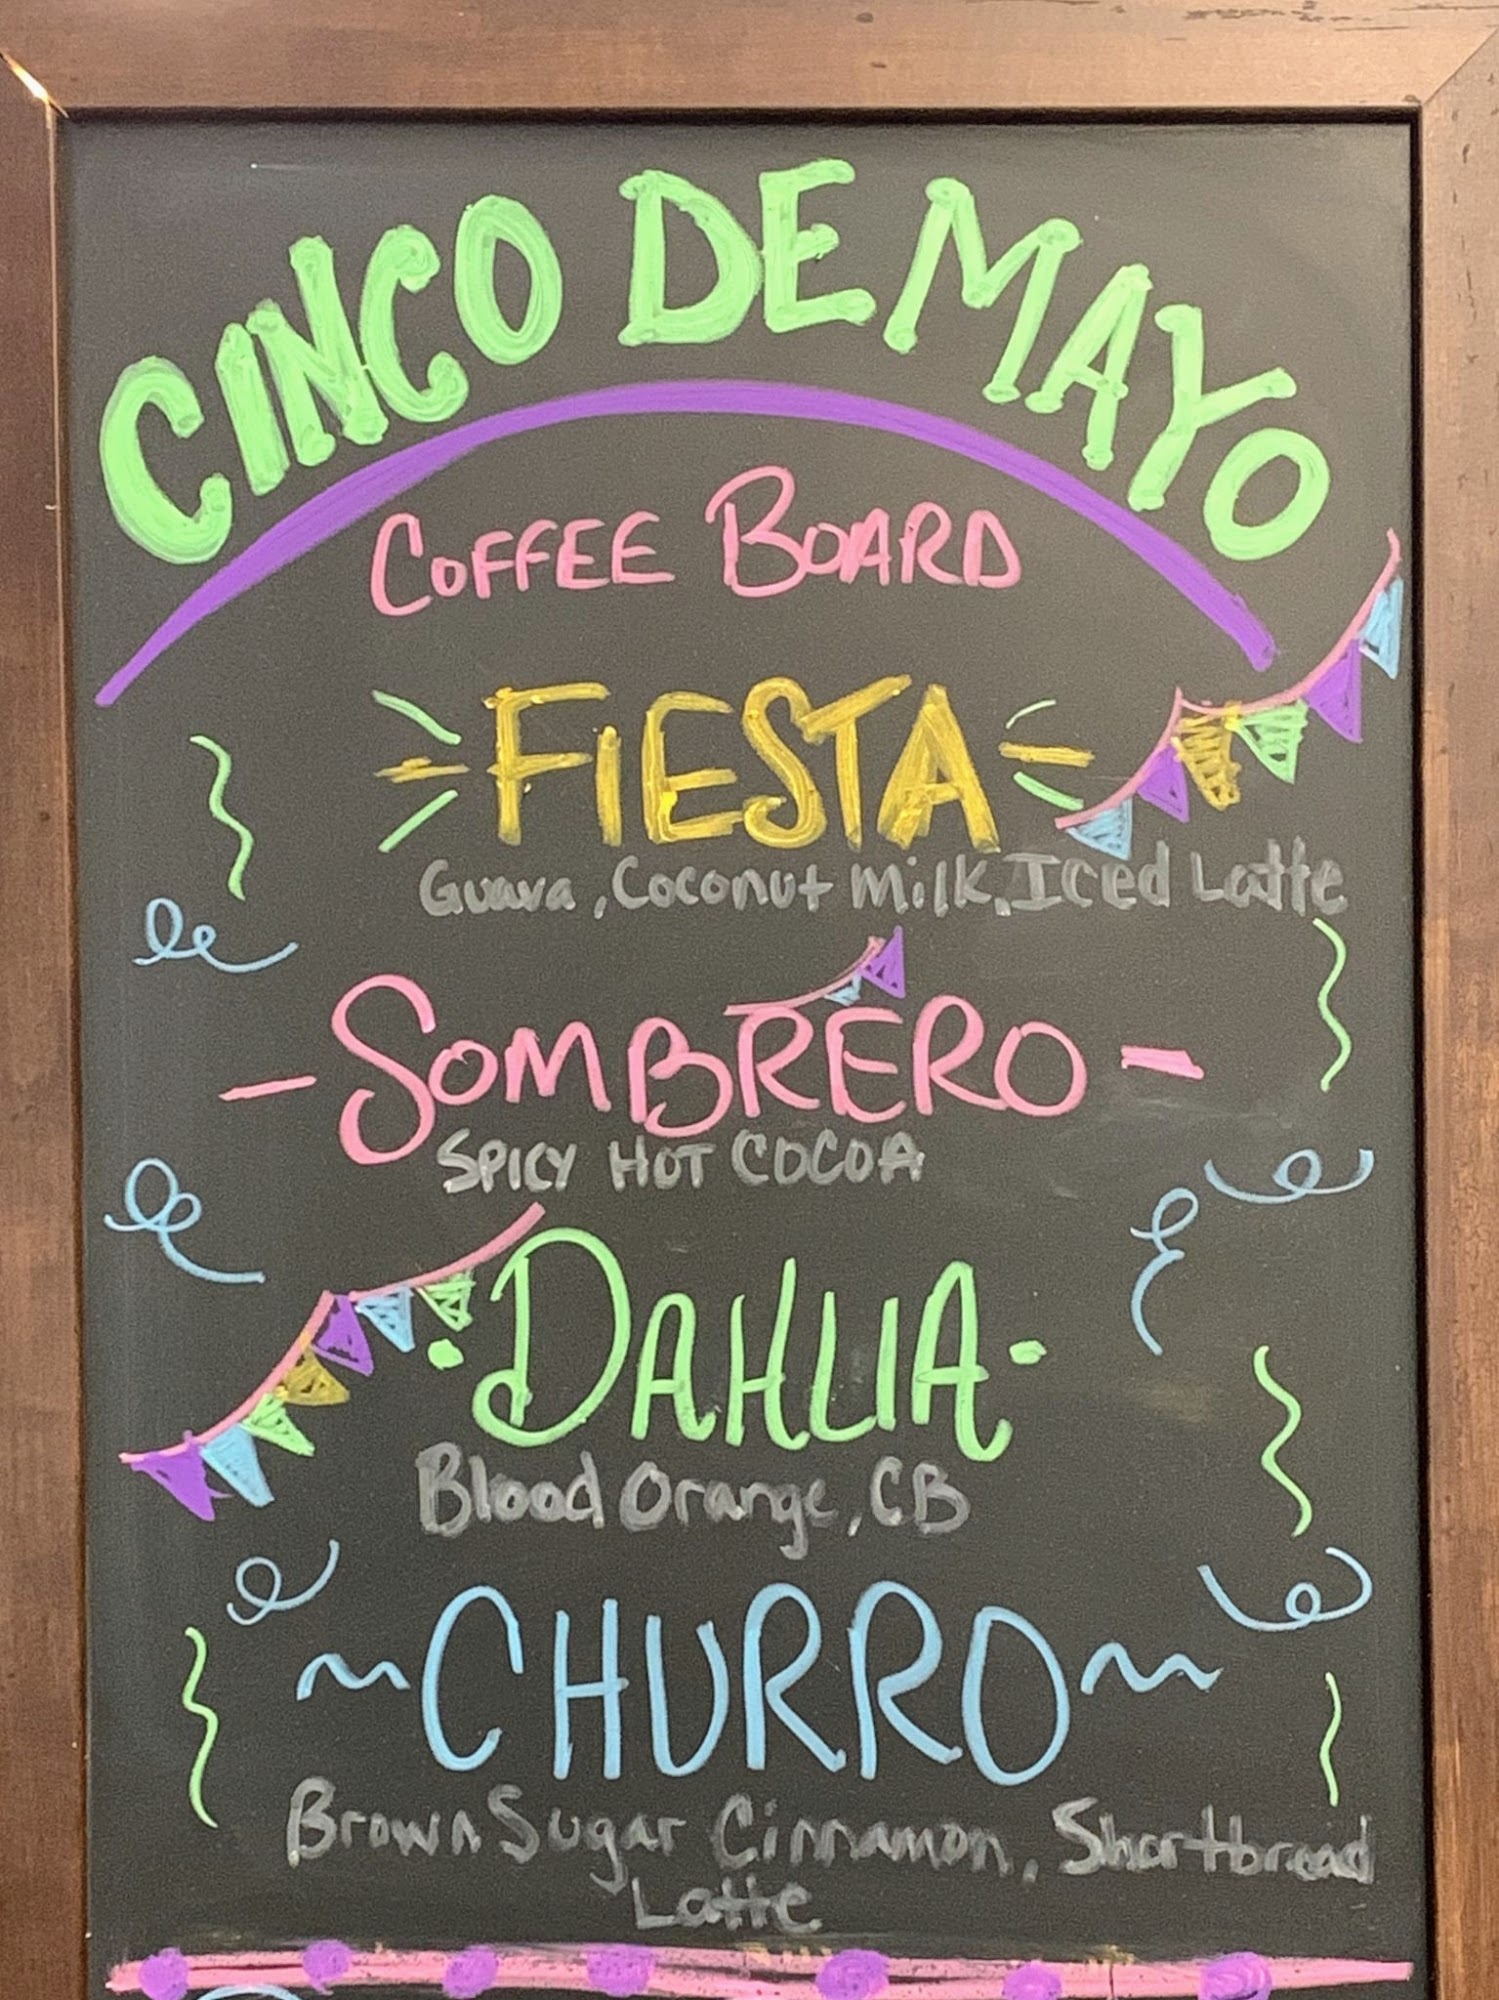 CINCO DE MAYO
COFFEE BOARD
FIESTA
Guava, Coconut Milk, Iced Latte
- SOMBRERO -
SPICY HOT COCOA
· DAHLIA ·
Blood Orange, CB
~ CHURRO ~
Brown Sugar Cinnamon, Shortbread
Latte